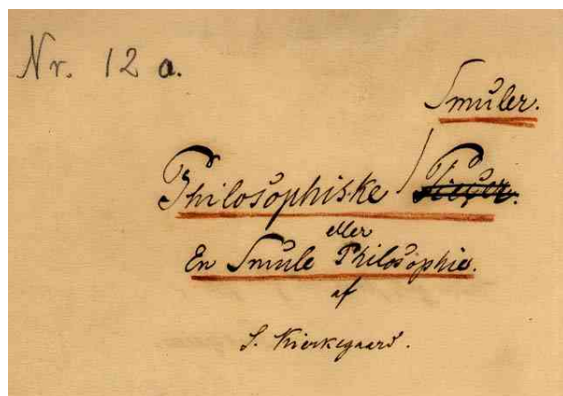 Nr. 12 a.
Smuler.
Philosophiske Piecer.
eller
En Smule Philosophie.
af
S. Kierkegaard.